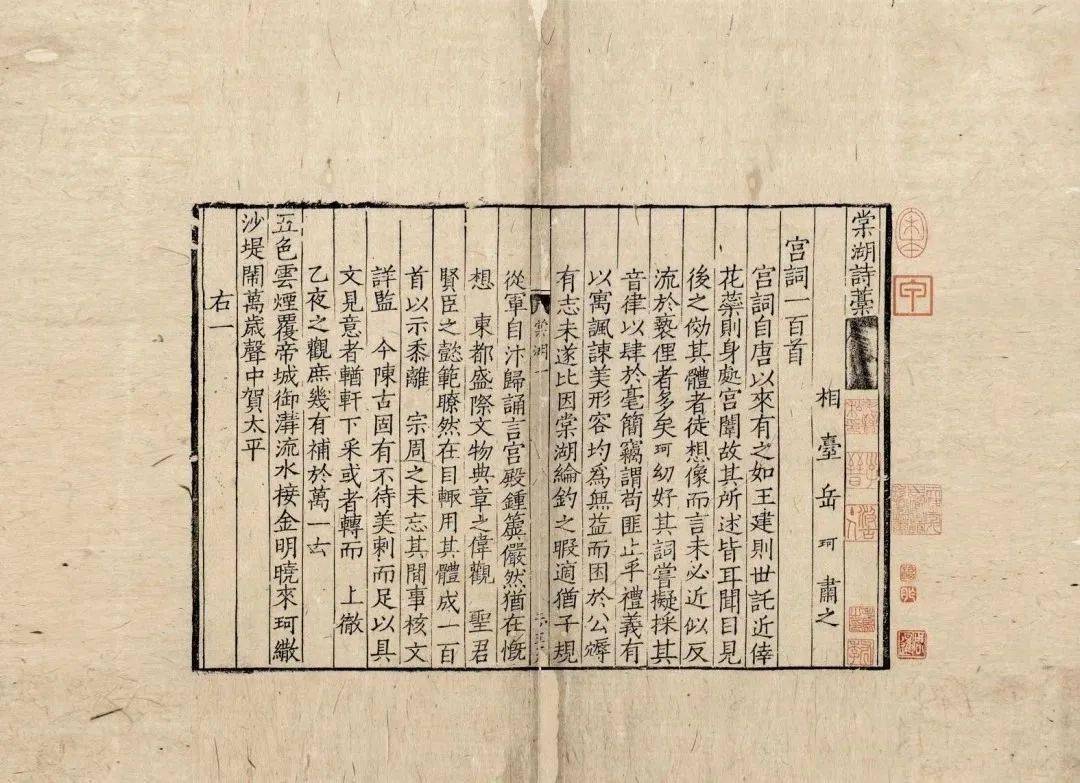 棠湖詩藁
相臺岳珂肅之
宮詞一百首
宮詞自唐以來有之如王建則世託近倖
花蘂則身處宮闈故其所述皆耳聞目見
後之傚其體者徒想像而言未必近似反
流於褻俚者多矣珂幼好其詞嘗擬採其
音律以肆於毫簡竊謂苟匪止乎禮義有
以寓諷諫美形容均爲無益而困於公𢌿
有志未遂比因棠湖綸釣之暇適猶子規
從軍自汴歸誦言宮殿鍾簴儼然猶在慨
想 東都盛際文物典章之偉觀 聖君
賢臣之懿範瞭然在目輒用其體成一百
首以示黍離 宗周之未忘其間事核文
詳監 今陳古固有不待美刺而足以具
文見意者輶軒下采或者轉而 上徹
乙夜之觀庶幾有補於萬一云
五色雲煙覆帝城御溝流水接金明曉來珂繖
沙堤鬧萬歲聲中賀太平
右一
棠湖一